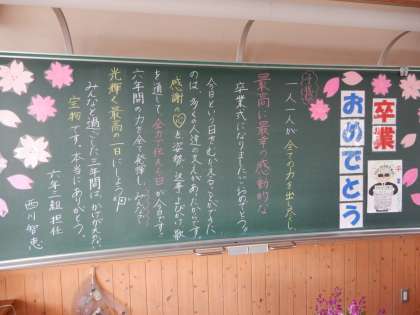 卒業
おめでとう
一人一人が全ての力を出し尽くし、
最高に最幸の感動的な
卒業式になりました。おめでとう。
今日という日をむかえることができた
のは、多くの人達の支えがあったからです。
感謝の心を姿勢、返事、よびかけ、歌
を通して、全力で伝える日が今日です。
六年間の力を全て発揮し、みんなで
光輝く最高の一日にしよう
みんなと過ごした三年間は、かけがえのない
宝物です。本当にありがとう。
六年二組 担任
西川 智恵